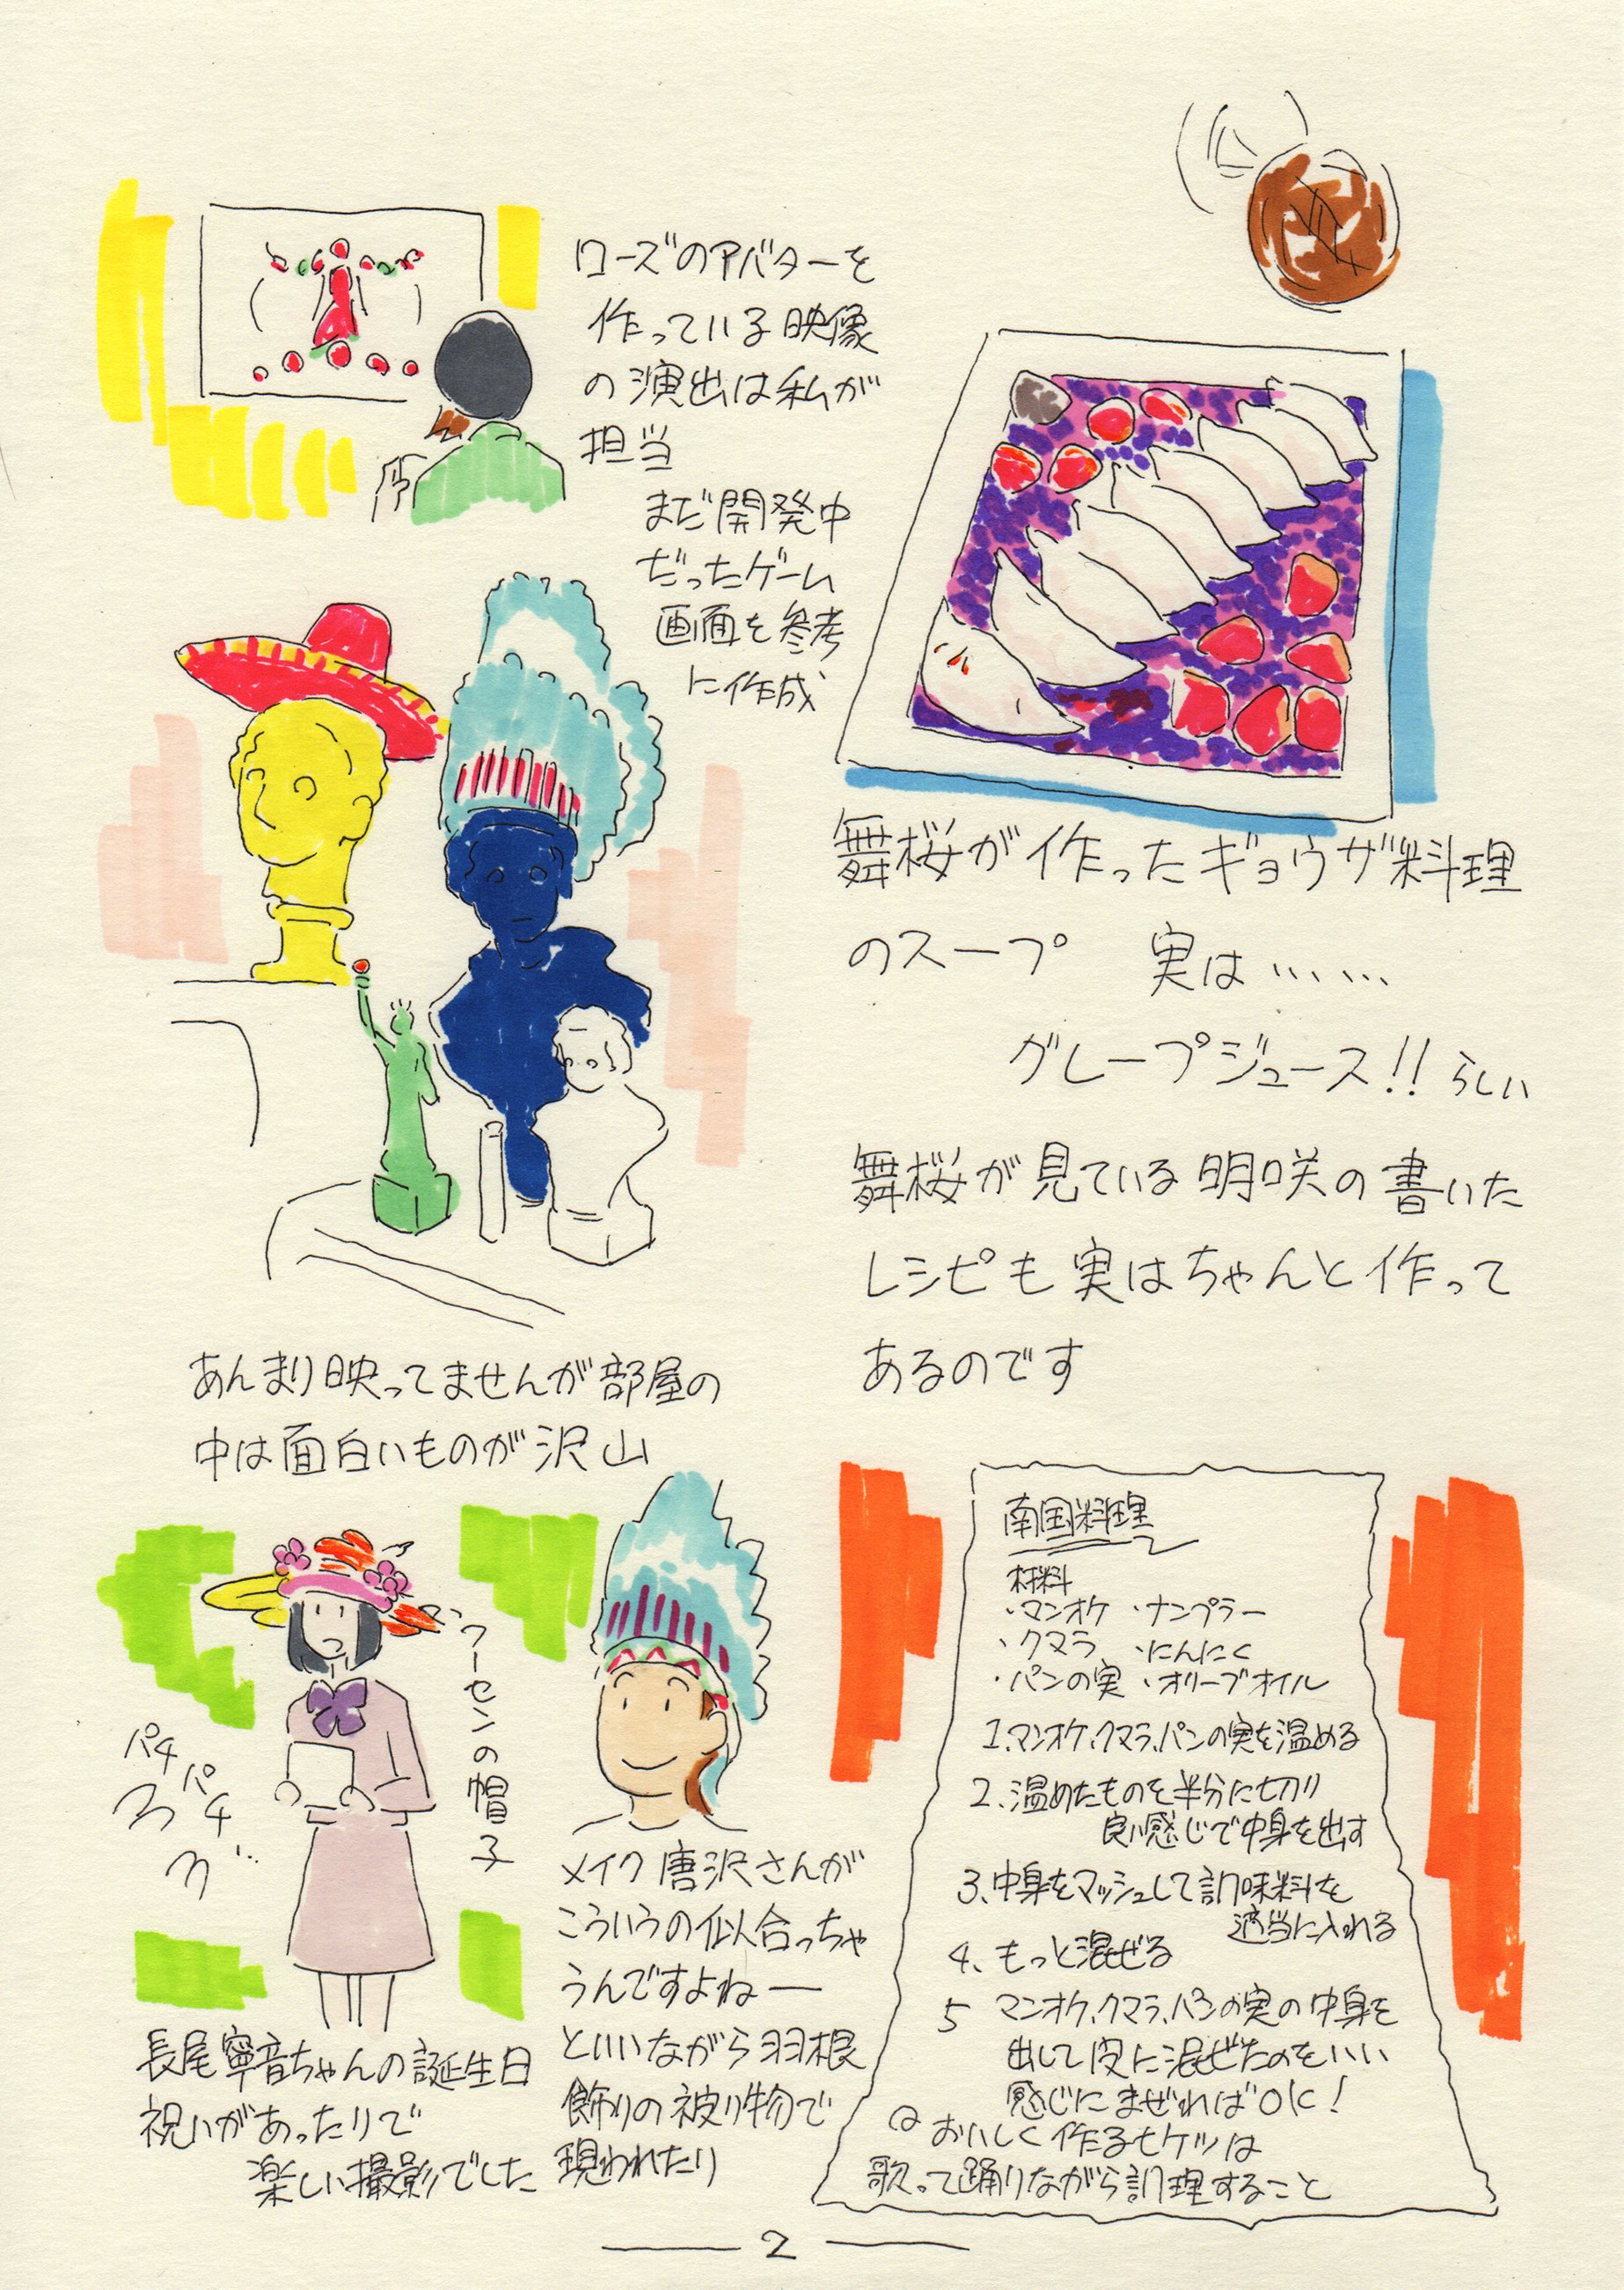 ローズのアバターを
作っている映像
の演出は私が
担当
まだ開発中
だったゲーム
画面を参考
に作成
舞桜が作ったギョウザ料理
のスープ 実は……
グレープジュース!! らしい
舞桜が見ている明咲の書いた
レシピも実はちゃんと作って
あるのです
あんまり映ってませんが部屋の
中は面白いものが沢山
ワーセンの帽子
パチ
パチ
長尾寧音ちゃんの誕生日
祝いがあったりで
楽しい撮影でした
メイク唐沢さんが
こういうの似合っちゃ
うんですよねー
といいながら羽根
飾りの被り物で
現われたり
南国料理
材料
・マンオケ ・ナンプラー
・クマラ ・にんにく
・パンの実 ・オリーブオイル
1、マンオケ、クマラ、パンの実を温める
2、温めたものを半分に切り
良い感じで中身を出す
3、中身をマッシュして調味料を
適当に入れる
4、もっと混ぜる
5 マンオケ、クマラ、パンの実の中身を
出して皮に混ぜたのをいい
感じにまぜればOK!
おいしく作るヒケツは
歌って踊りながら調理すること
2